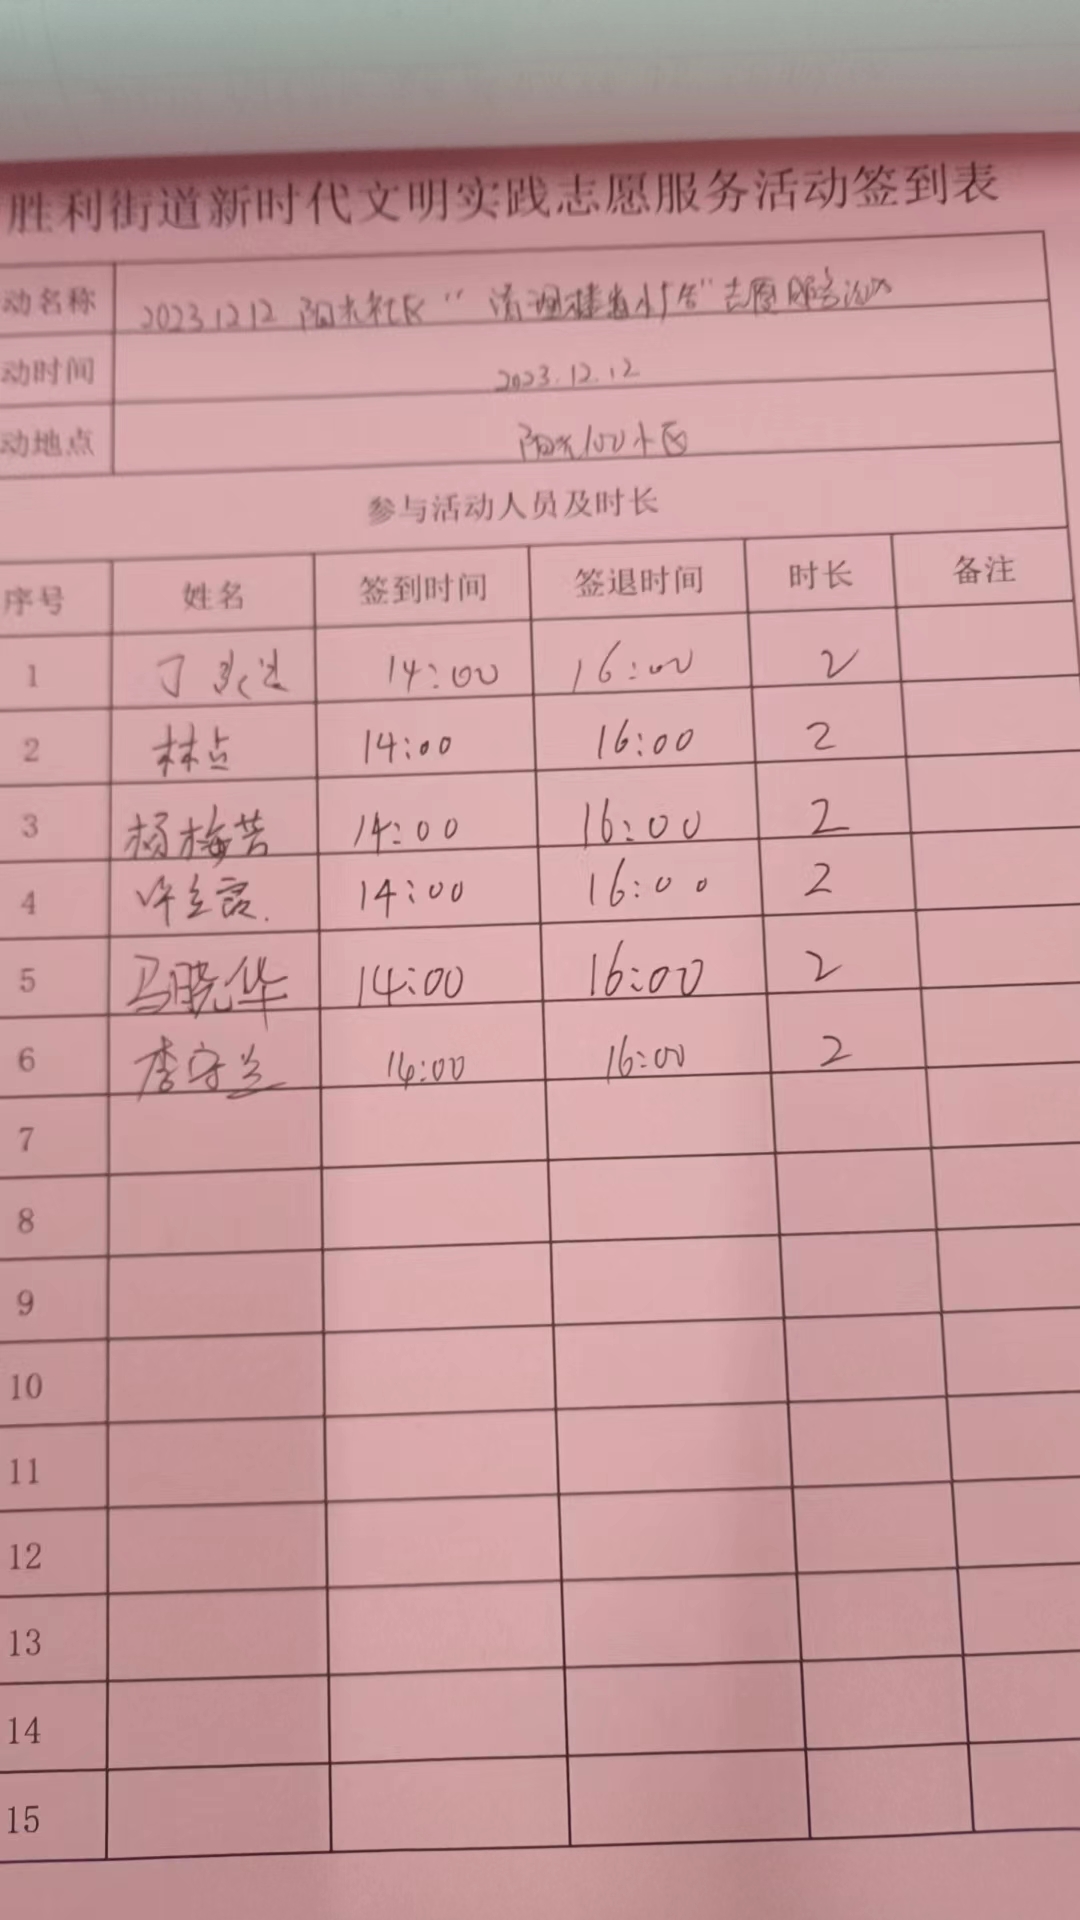 胜利街道新时代文明实践志愿服务活动签到表
动名称 2023.12.12 阳光社区“清理楼道小广告”志愿服务活动
动时间 2023.12.12
动地点 阳光100小区
参与活动人员及时长
序号 姓名 签到时间 签退时间 时长 备注
1 丁 14:00 16:00 2
2 林 14:00 16:00 2
3 杨梅芳 14:00 16:00 2
4 许 14:00 16:00 2
5 马晓华 14:00 16:00 2
6 李守兰 14:00 16:00 2
7
8
9
10
11
12
13
14
15